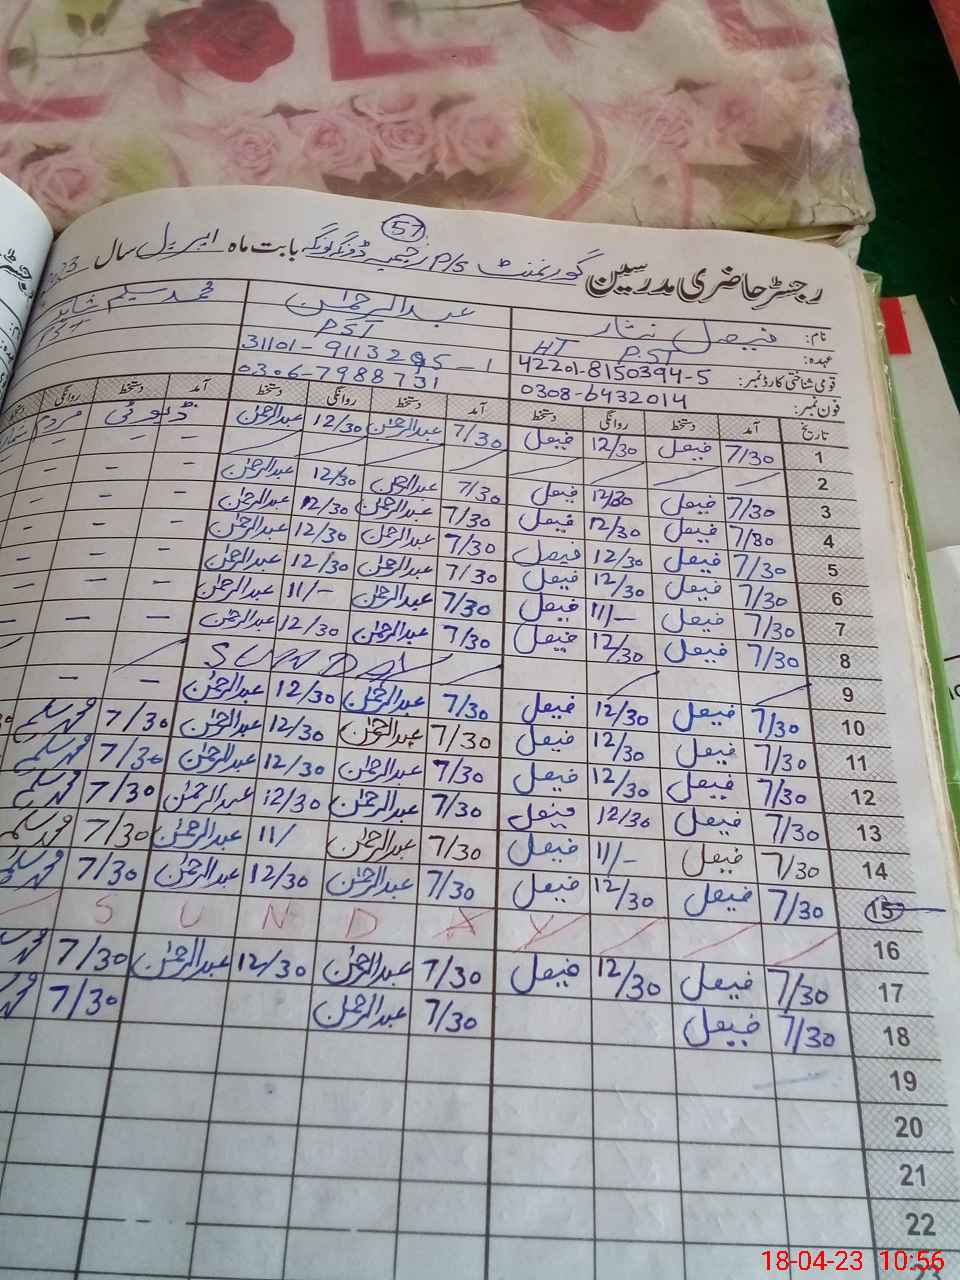 57
رجسٹر حاضری مدرسین گورنمنٹ P/S رحیمیہ بابت ماہ اپریل سال 23
نام: فیصل نثار عبدالرحمٰن محمد سلیم شاہد
عہدہ: HT PST PST PST
قومی شناختی کارڈ نمبر: 42201-8150394-5
فون نمبر: 0308-6432014 0306-7988731
تاریخ آمد دستخط روانگی دستخط آمد دستخط روانگی دستخط آمد دستخط روانگی
1 7/30 فیصل 12/30 فیصل 7/30 عبدالرحمٰن 12/30 عبدالرحمٰن ڈیوٹی مردم
2
3 7/30 فیصل 12/30 فیصل 7/30 عبدالرحمٰن 12/30 عبدالرحمٰن - -
4 7/30 فیصل 12/30 فیصل 7/30 عبدالرحمٰن 12/30 عبدالرحمٰن - -
5 7/30 فیصل 12/30 فیصل 7/30 عبدالرحمٰن 12/30 عبدالرحمٰن - -
6 7/30 فیصل 12/30 فیصل 7/30 عبدالرحمٰن 12/30 عبدالرحمٰن - -
7 7/30 فیصل 11/- فیصل 7/30 عبدالرحمٰن 11/- عبدالرحمٰن - -
8 7/30 فیصل 12/30 فیصل 7/30 عبدالرحمٰن 12/30 عبدالرحمٰن - -
9 SUNDAY
10 7/30 فیصل 12/30 فیصل 7/30 عبدالرحمٰن 12/30 عبدالرحمٰن - -
11 7/30 فیصل 12/30 فیصل 7/30 عبدالرحمٰن 12/30 عبدالرحمٰن 7/30 محمد سلیم
12 7/30 فیصل 12/30 فیصل 7/30 عبدالرحمٰن 12/30 عبدالرحمٰن 7/30 محمد سلیم
13 7/30 فیصل 12/30 فیصل 7/30 عبدالرحمٰن 12/30 عبدالرحمٰن 7/30 محمد سلیم
14 7/30 فیصل 11/- فیصل 7/30 عبدالرحمٰن 11/ عبدالرحمٰن 7/30 محمد سلیم
15 7/30 فیصل 12/30 فیصل 7/30 عبدالرحمٰن 12/30 عبدالرحمٰن 7/30 محمد سلیم
16 SUNDAY
17 7/30 فیصل 12/30 فیصل 7/30 عبدالرحمٰن 12/30 عبدالرحمٰن 7/30
18 7/30 فیصل 7/30 عبدالرحمٰن 7/30
19
20
21
22
23
18-04-23 10:56